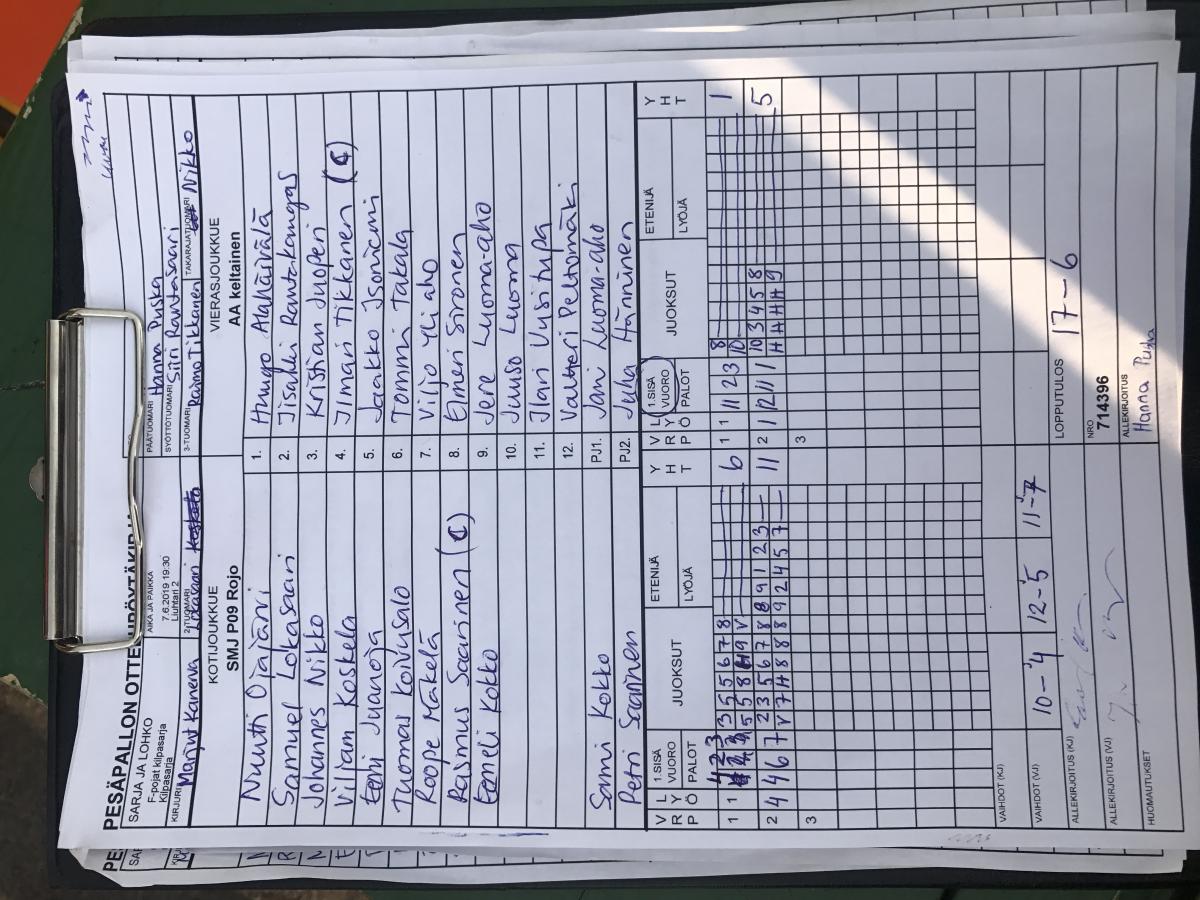 PESÄPALLON OTTELUPÖYTÄKIRJA
SARJA JA LOHKO
F-pojat kilpasarja
Kilpasarja
AIKA JA PAIKKA
7.6.2019 19:30
Liuhtari 2
PÄÄTUOMARI Hanna Puska
SYÖTTÖTUOMARI Siiri Rantasaari
KIRJURI Marjut Kanerva
2-TUOMARI
3-TUOMARI Raimo Tikkanen
TAKARAJATUOMARI Nikko
KOTIJOUKKUE
SMJ P09 Rojo
VIERASJOUKKUE
AA keltainen
Nuutti Ojajärvi
Samuel Lokasaari
Johannes Nikko
Viljam Koskela
Eemi Juurioja
Tuomas Koivusalo
Roope Mäkelä
Rasmus Saarinen (C)
Eemeli Kokko
Sami Kokko
Petri Saarinen
1. Huugo Alahäivälä
2. Iisakki Rautakangas
3. Kristian Juoperi
4. Ilmari Tikkanen (C)
5. Jaakko Isoniemi
6. Tommi Takala
7. Viljo Yli-aho
8. Elmeri Sironen
9. Jere Luoma-aho
10. Juuso Luoma
11. Ilari Uusitupa
12. Valtteri Peltomäki
PJ1. Jani Luoma-aho
PJ2. Juha Hänninen
V R P
L Y Ö
1.SISÄ VUORO
PALOT
JUOKSUT
ETENIJÄ
LYÖJÄ
Y H T
V R P
L Y Ö
1.SISÄ VUORO
PALOT
JUOKSUT
ETENIJÄ
LYÖJÄ
Y H T
1 1 4 2 3 3 5 5 6 7 8 6
2 4 4 6 7 2 3 5 6 7 8 8 9 1 2 3 11
V 7 H 8 8 8 9 2 4 5 7
3
1 1 11 2 3 8 1
10
2 1 12 11 1 10 3 4 5 8 5
H H H H 9
3
VAIHDOT (KJ)
VAIHDOT (VJ)
10-4 12-5 11-7
LOPPUTULOS
17-6
ALLEKIRJOITUS (KJ)
NRO
714396
ALLEKIRJOITUS (VJ)
ALLEKIRJOITUS
Hanna Puska
HUOMAUTUKSET